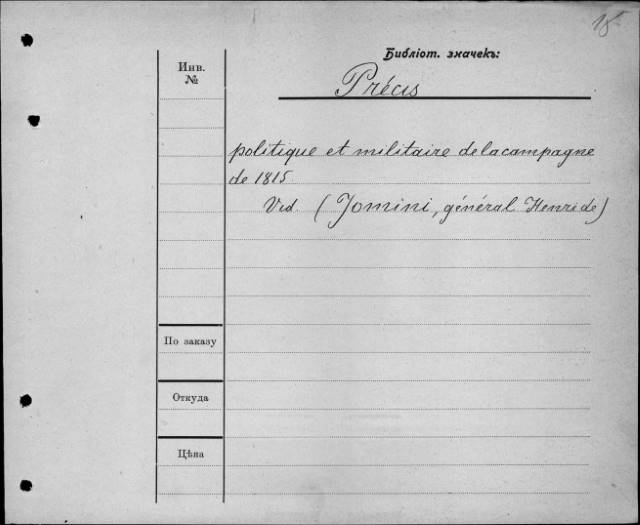 18
Библiот. значекъ:
Инв.
№
Précis
politique et militaire de la campagne
de 1815
Vid. (Jomini, général Henri de)
По заказу
Откуда
Цѣна